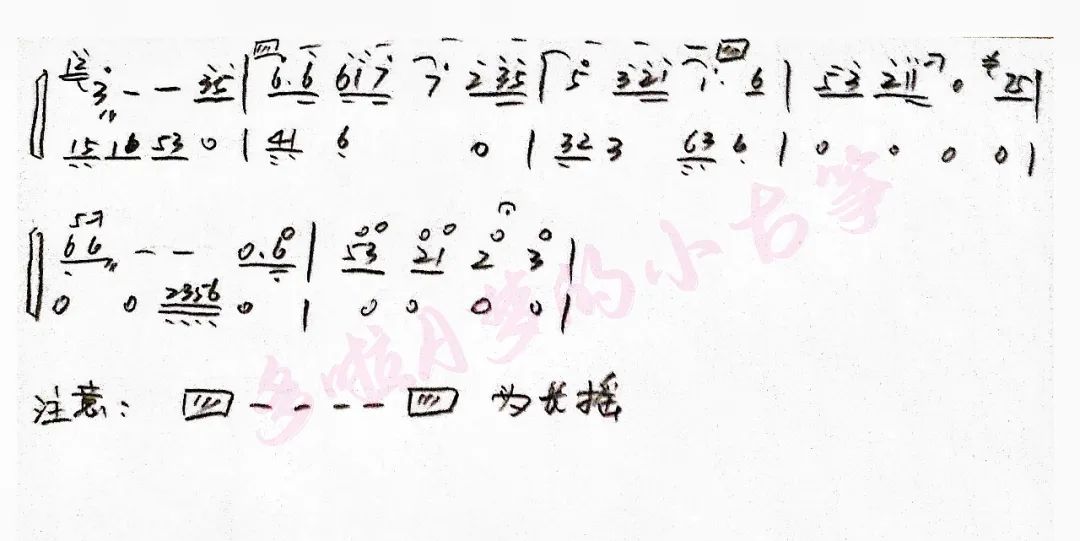 12
3 - - 35 | 6.6 617 7 235 | 5 321 7. 6 | 53 211 0 25 |
15 16 53 0 | 41 6 0 | 323 63 6 | 0 0 0 0 |
57
66 - - 0.6 | 53 21 2 3 |
0 0 2356 0 | 0 0 0 0 |
注意: [///] - - - - [///] 为长摇
多啦A梦的小古筝